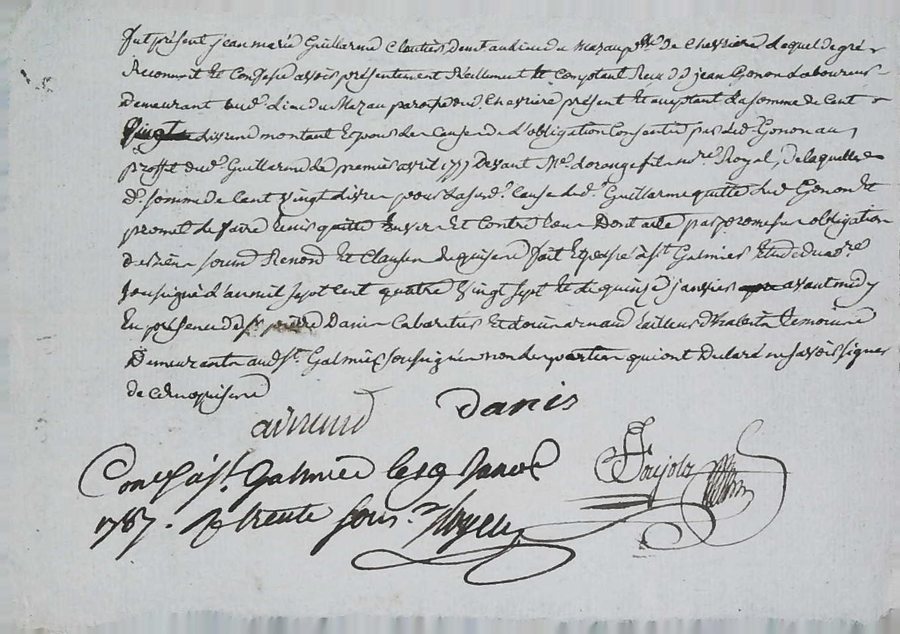 fut présent jean marie Guillarme cloutier demt audit lieu du mazau psse de Chevriere Lequel de gré
Reconnoit Et Confesse avoir présentement Réellement Et Comptant Reçu de jean Gonon Laboureur
demeurant aud. Lieu du Mazau paroisse dud Chevriere présent Et acceptant La somme de Cent
Vingt livres montant Et pour Les Causes de L'obligation Consentie par Led. Gonon au
proffit dud. Guillarme le premier avril 1777 Devant Me. Royal, De laquelle
de. somme de Cent vingt livres pour La sud. Cause led. Guillarme quitte led Gonon Et
promet de faire tenir quitte Envers Et Contre tous Dont acte par promesse obligation
de biens soum Renon Et Clauses Requises fait Et passé à St. Galmier Etude du nore.
soussigné L'an mil sept Cent quatre Vingt sept Et Le quinze janvier avant midy
En présence de sr. pierre Danis Cabaretier Et arnaud tailleur d'habits temoins
Demeurants aud. St. Galmier soussignés non Les parties qui ont Declaré ne savoir signer
de ce Requises
arnaud Danis
Conlé à St. Galmier le 19 janvier
1787. R trente sous.